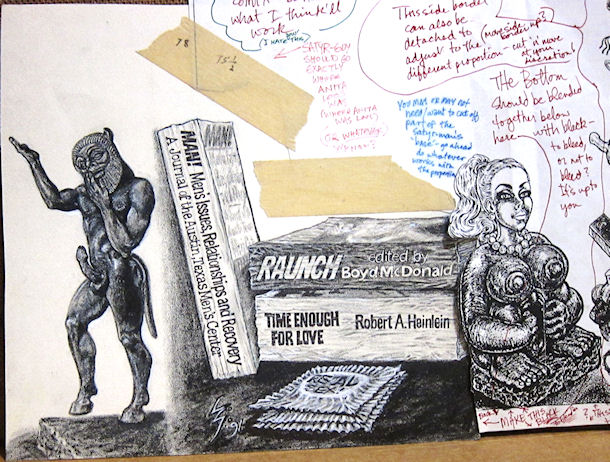 what I think'll
work
(I HATE THIS)
78
75 1/2
SATYR-GUY
SHOULD GO
EXACTLY
WHERE
ANITA
WAS
This side border
can also be
detached to
adjust to the
different proportion - cut 'n' move
at your
discretion!
THE BOTTOM
should be blended
together below
here - with black -
to bleed,
or not to
bleed?
It's up to
you
YOU MAY OR MAY NOT
need/want to cut off
part of the
satyr-man's
"back" - go ahead
do whatever
works with
the proportion
MAN! Men's Issues, Relationships and Recovery
A Journal of the Austin, Texas Men's Center
RAUNCH edited by
Boyd McDonald
TIME ENOUGH
FOR LOVE Robert A. Heinlein
MAKE THIS